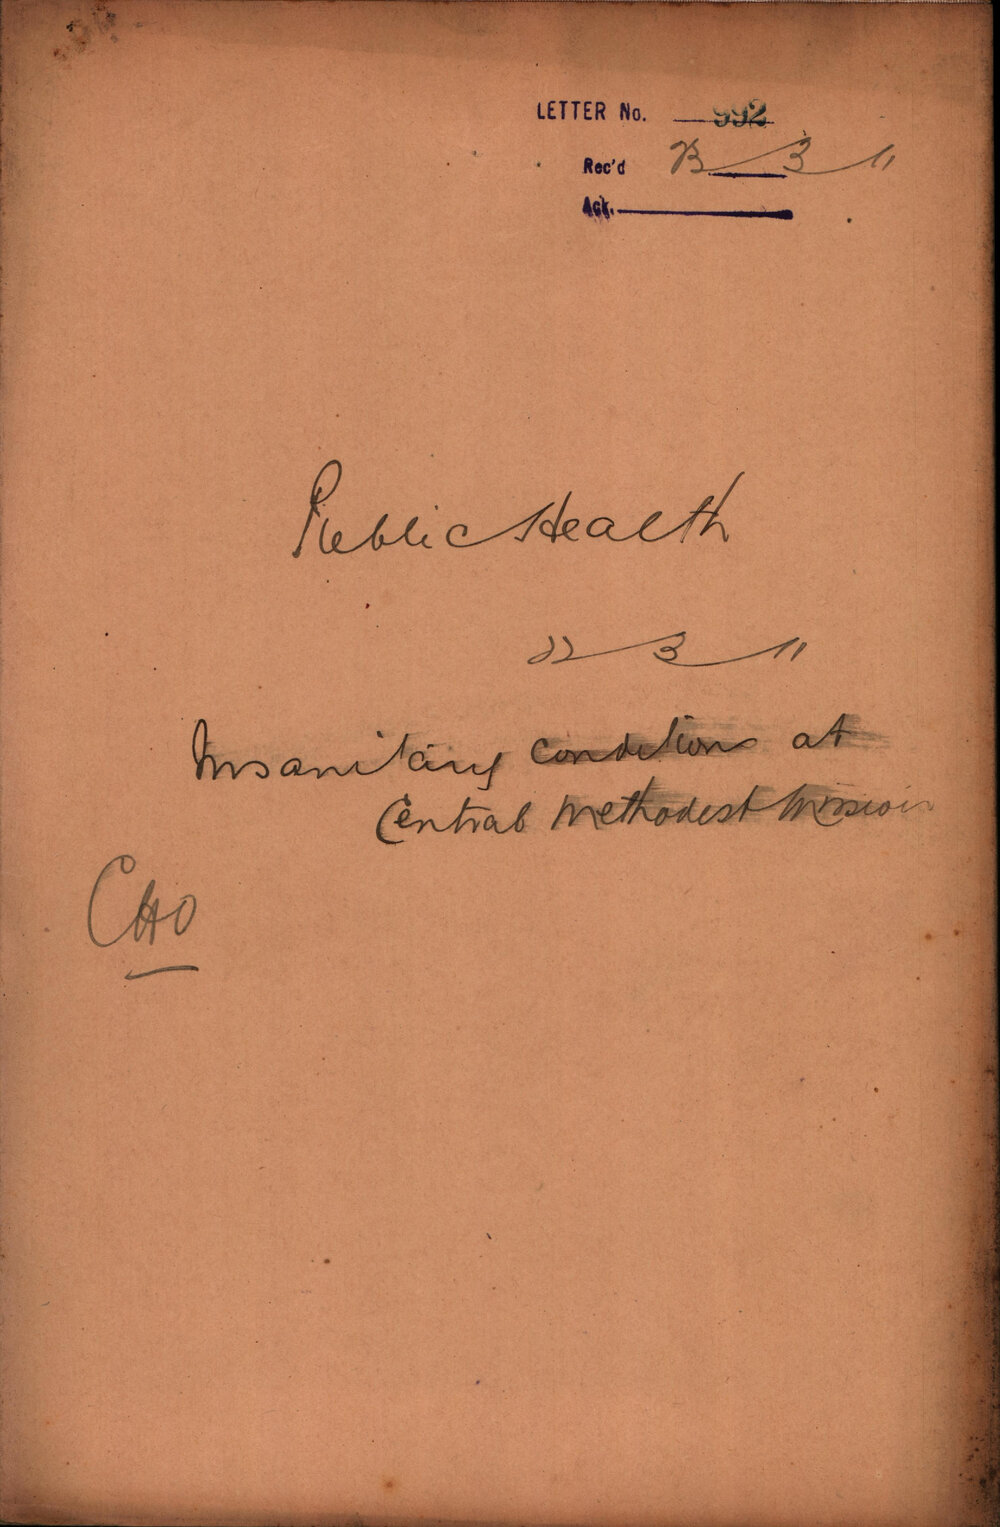 LETTER No. 992
Rec'd 23 3 11
Ack.
Public Health
22 3 11
Insanitary conditions at
Central Methodest Mission
CHO